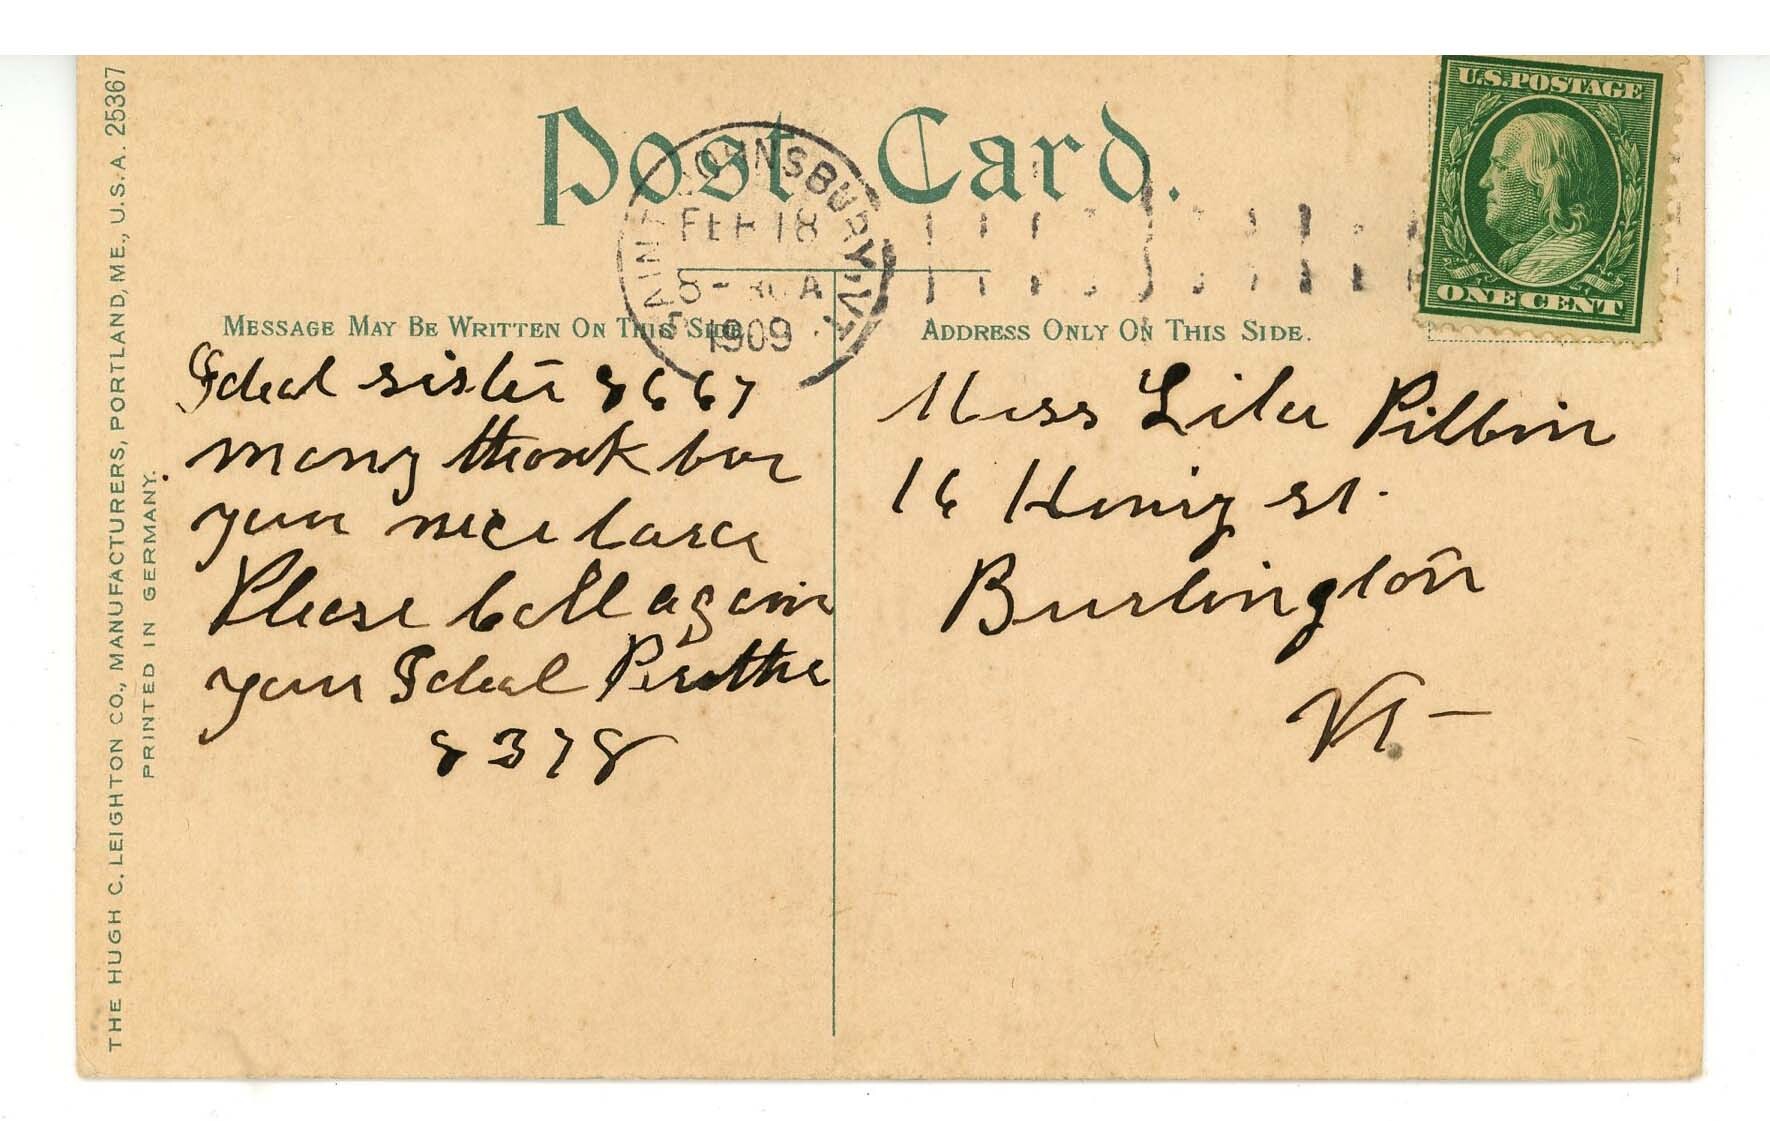 THE HUGH C. LEIGHTON CO., MANUFACTURERS, PORTLAND, ME., U.S.A. 25367
PRINTED IN GERMANY.
Post Card.
U.S. POSTAGE
ONE CENT
SAINT JOHNSBURY, VT.
FEB 18
8-30 A
1909
MESSAGE MAY BE WRITTEN ON THIS SIDE
Ideal sister 8667
many thank for
your nice
Please call again
your Ideal
8378
ADDRESS ONLY ON THIS SIDE.
Miss Lila
16 st.
Burlington
Vt-